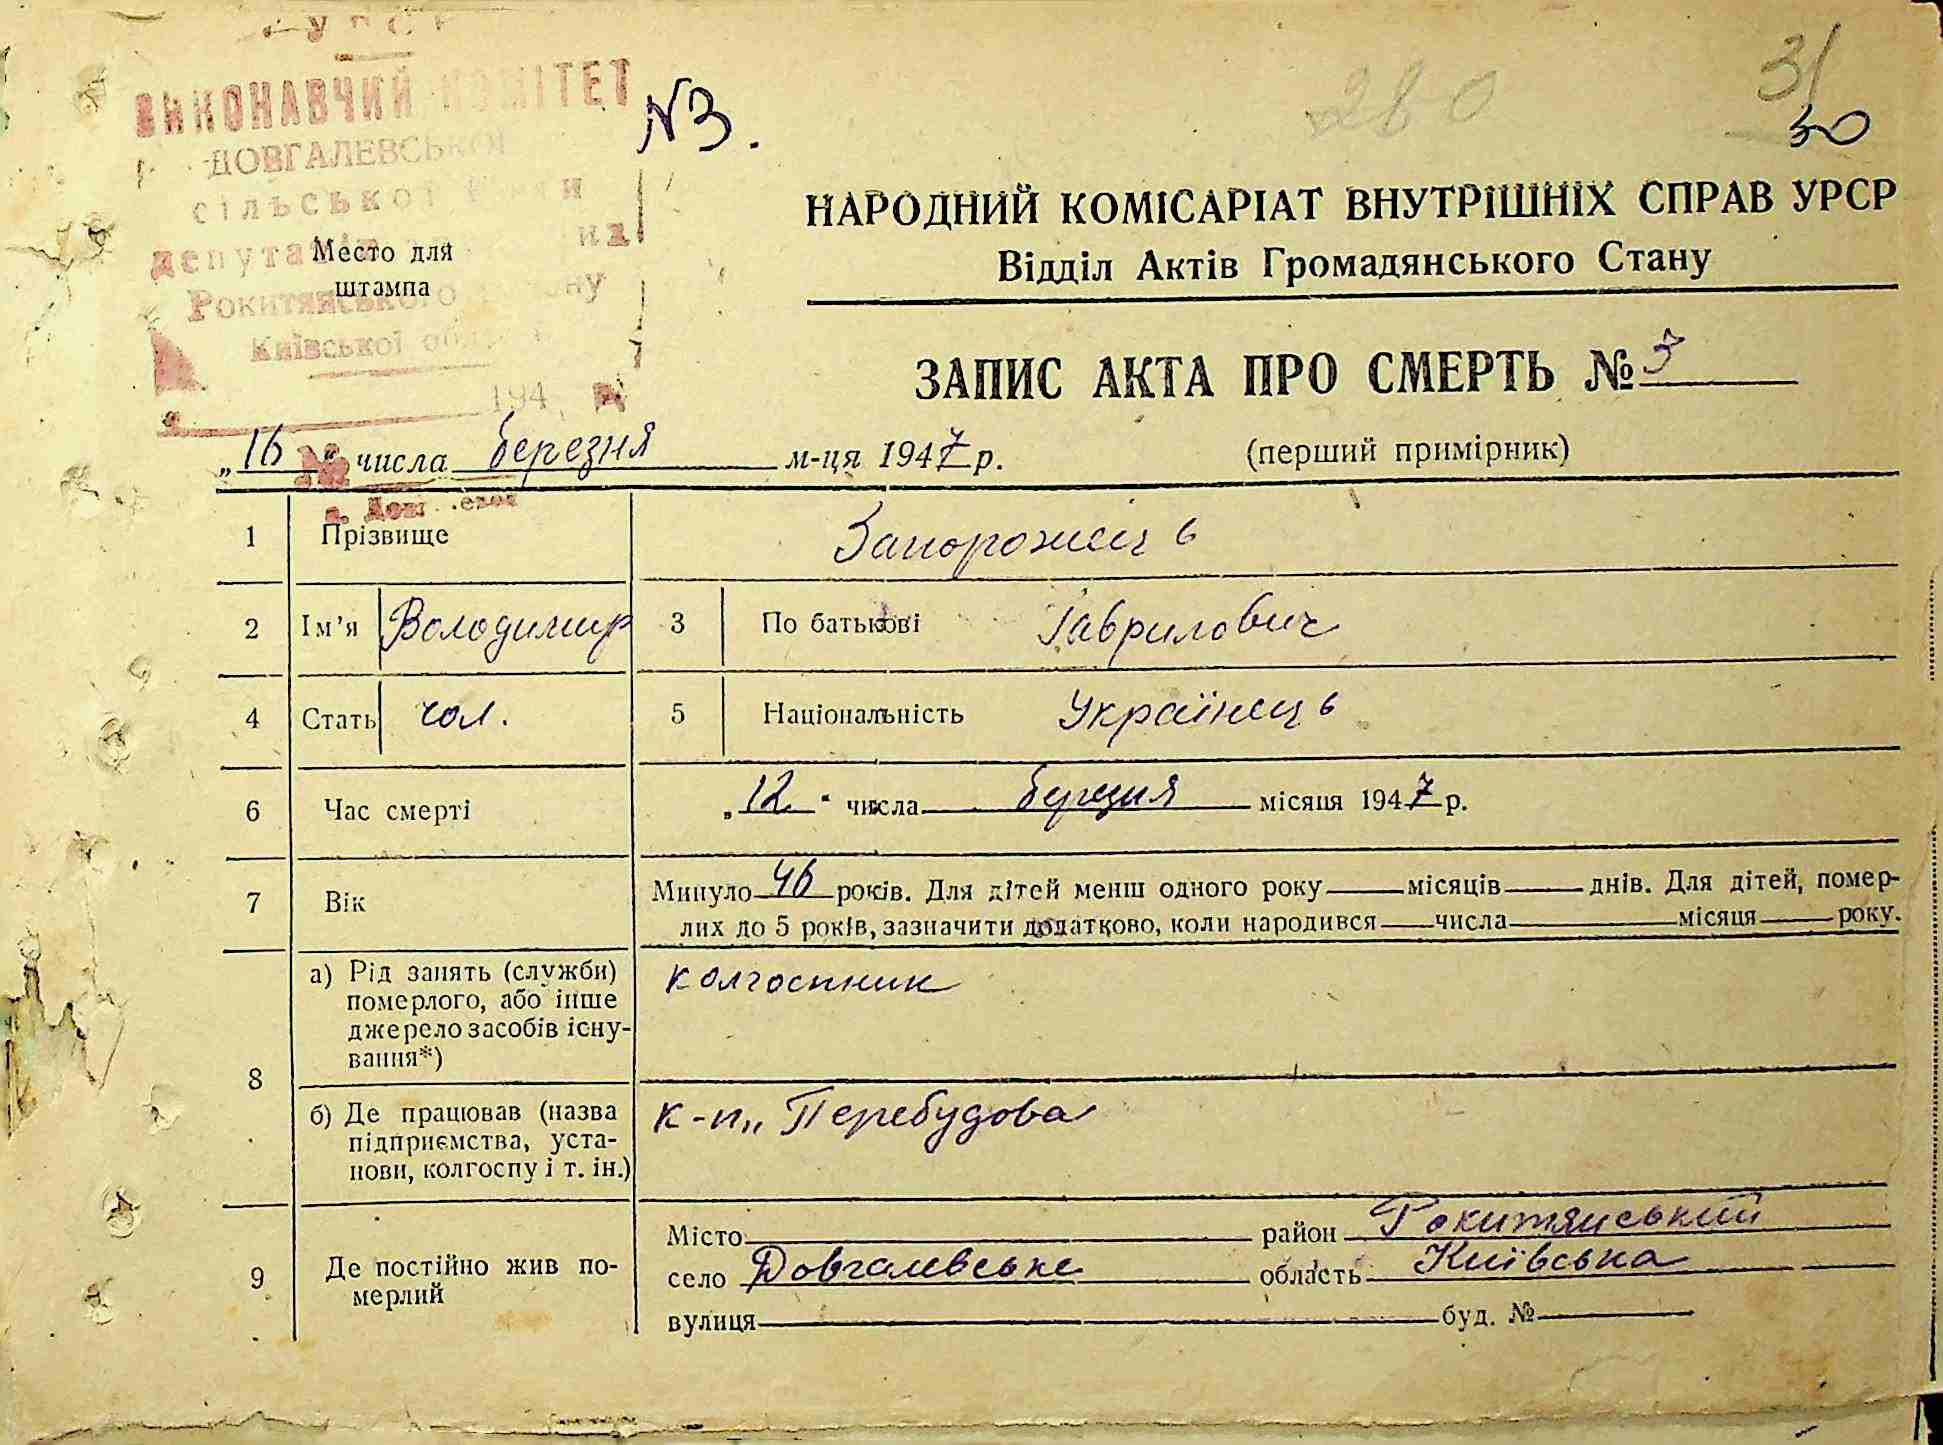 УРСР
ВИКОНАВЧИЙ КОМІТЕТ
ДОВГАЛЕВСЬКОЇ
сільської Ради
депутатів
Рокитянського району
Київської
194
№
N3.
280
31
30
Место для
штампа
НАРОДНИЙ КОМІСАРІАТ ВНУТРІШНІХ СПРАВ УРСР
Відділ Актів Громадянського Стану
ЗАПИС АКТА ПРО СМЕРТЬ № 3
„16“ числа березня м-ця 1947 р. (перший примірник)
1 Прізвище Запорожець
2 Ім'я Володимир 3 По батькові Гаврилович
4 Стать чол. 5 Національність Українець
6 Час смерті „12“ числа березня місяця 1947 р.
7 Вік Минуло 46 років. Для дітей менш одного року місяців днів. Для дітей, помер-
лих до 5 років, зазначити додатково, коли народився числа місяця року.
8 а) Рід занять (служби) колгоспник
померлого, або інше
джерело засобів існу-
вання*)
б) Де працював (назва к-п „Перебудова
підприємства, уста-
нови, колгоспу і т. ін.)
9 Де постійно жив по-
мерлий
Місто район Рокитянський
село Довгалевське область Київська
вулиця буд. №